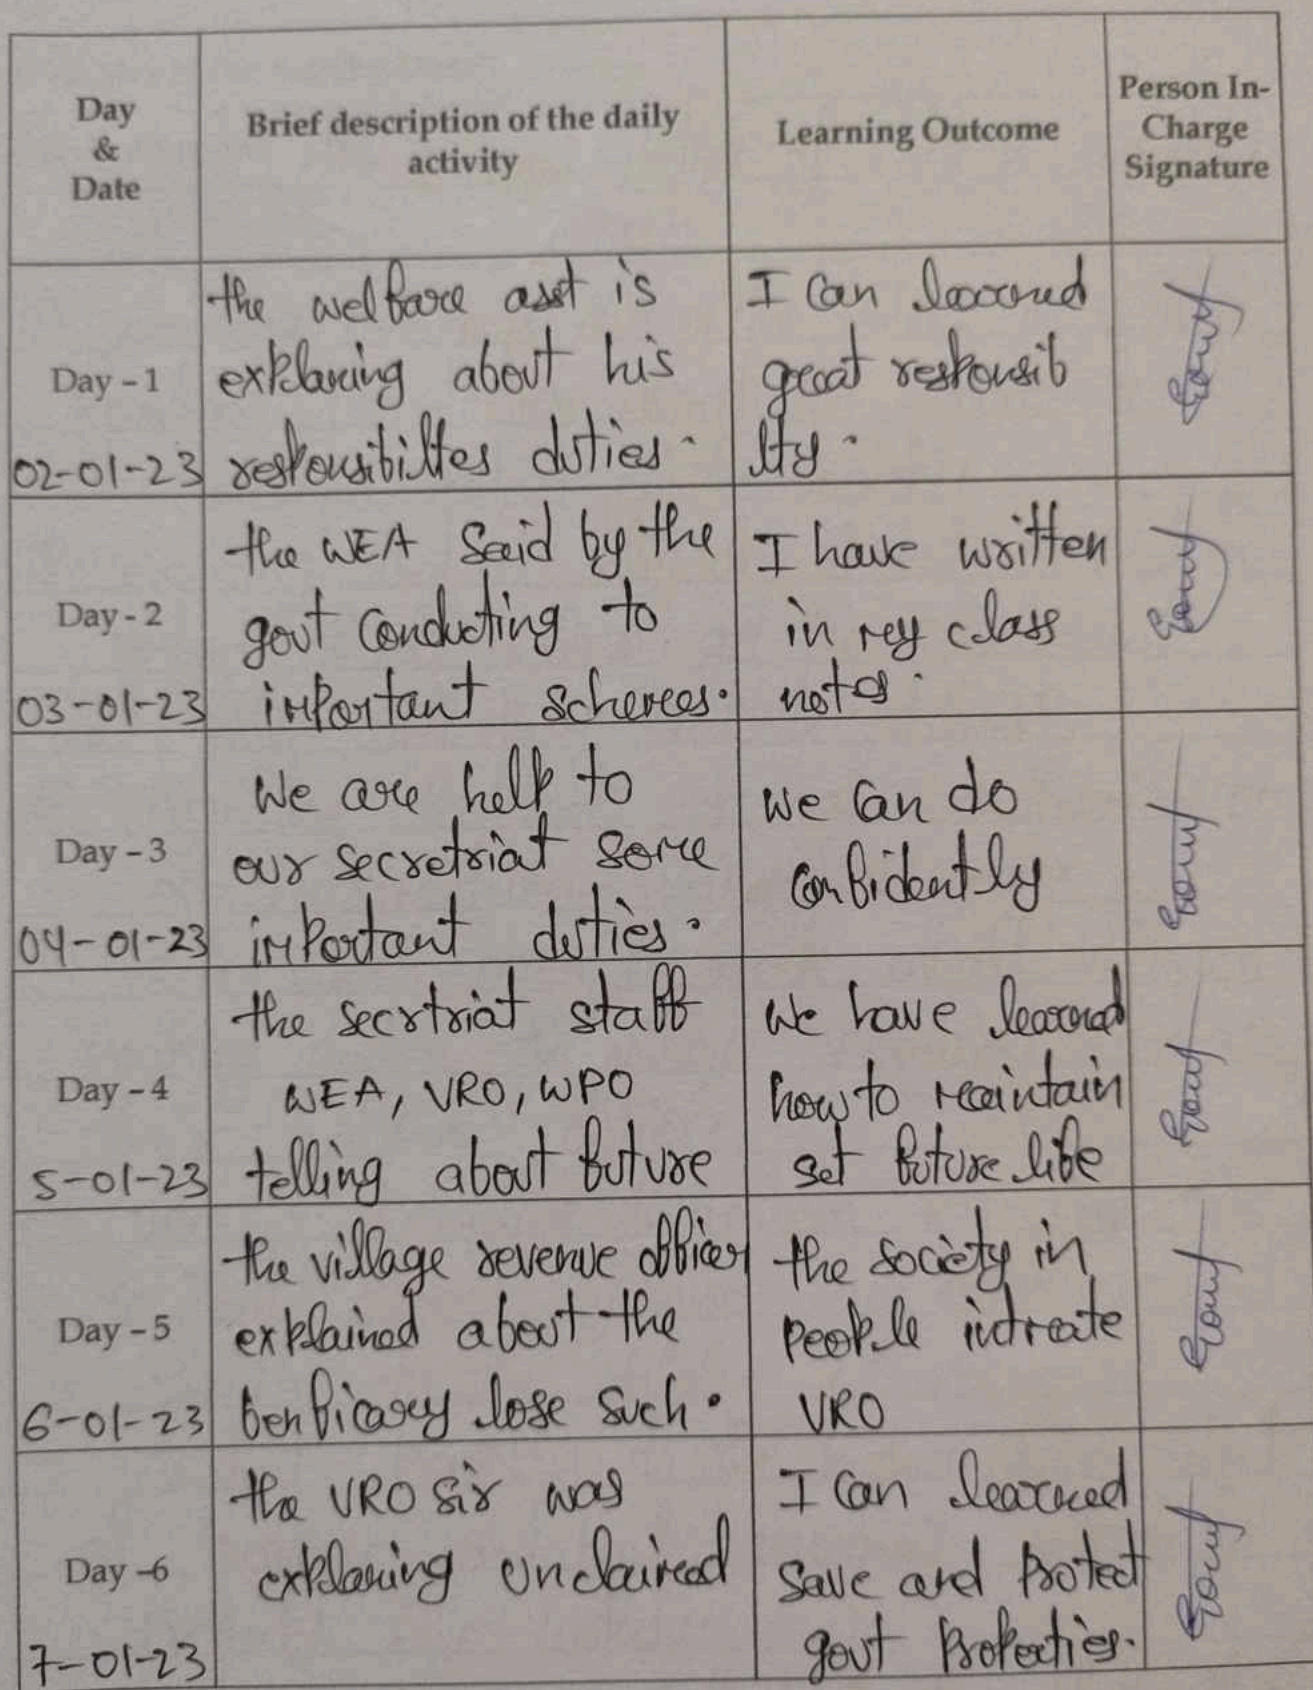 Day
&
Date
Brief description of the daily
activity
Learning Outcome
Person In-
Charge
Signature
Day - 1
02-01-23
the welfare asst is
explaning about his
responsibiltes duties.
I can learned
great responsib
lty.
Day - 2
03-01-23
the WEA Said by the
govt conducting to
important schemes.
I have written
in my class
notes.
Day - 3
04-01-23
We are help to
our secretriat some
important duties.
we can do
confidently
Day - 4
5-01-23
the secrtriat staff
WEA, VRO, WPO
telling about future
we have learned
how to maintain
set future life
Day - 5
6-01-23
the village revenue officer
explained about the
benficary lose such.
the society in
people
VRO
Day -6
7-01-23
the VRO sir was
explaning unclaimed
I can learned
save and protect
govt properties.